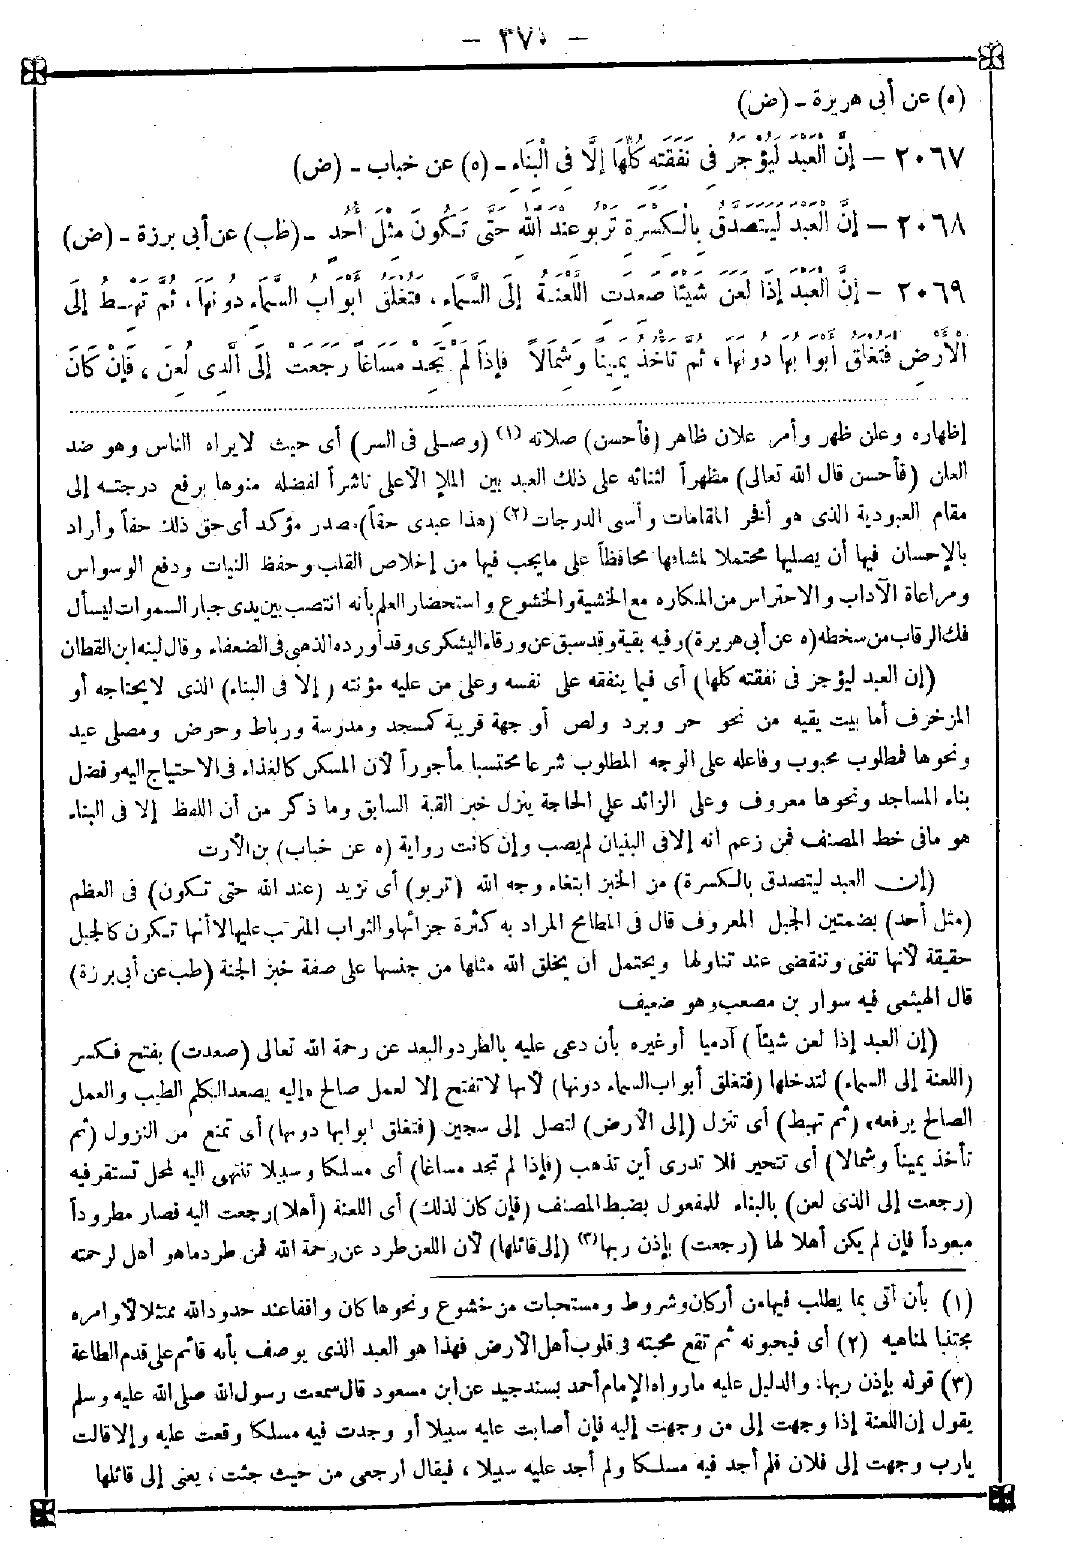 - ٣٧٠ -
(ه) عن أبى هريرة - (ض)
٢٠٦٧ - إِنَّ الْعَبْدَ لَيُؤْجَرُ فِى نَفَقَتِهِ كُلِّهَا إِلَّا فِى الْبِنَاءِ - (ه) عن خباب - (ض)
٢٠٦٨ - إِنَّ الْعَبْدَ لَيَتَصَدَّقُ بِالْكِسْرَةِ تَرْبُو عِنْدَ اللّٰهِ حَتَّى تَكُونَ مِثْلَ أُحُدٍ - (طب) عن أبى برزة - (ض)
٢٠٦٩ - إِنَّ الْعَبْدَ إِذَا لَعَنَ شَيْئًا صَعِدَتِ اللَّعْنَةُ إِلَى السَّمَاءِ، فَتُغْلَقُ أَبْوَابُ السَّمَاءِ دُونَهَا، ثُمَّ تَهْبِطُ إِلَى
الْأَرْضِ فَتُغْلَقُ أَبْوَابُهَا دُونَهَا، ثُمَّ تَأْخُذُ يَمِينًا وَشِمَالاً فَإِذَا لَمْ تَجِدْ مَسَاغًا رَجَعَتْ إِلَى الَّذِى لُعِنَ، فَإِنْ كَانَ
إظهاره وعلن ظهر وأمر علان ظاهر (فأحسن) صلاته (١) (وصلى فى السر) أى حيث لايراه الناس وهو ضد
العلن (فأحسن قال الله تعالى) مظهراً لثنائه على ذلك العبد بين الملإ الأعلى ناشراً لفضله منوها برفع درجته إلى
مقام العبودية الذى هو أفخر المقامات وأسى الدرجات (٢) (هذا عبدى حقاً) مصدر مؤكد أى حق ذلك حقاً وأراد
بالإحسان فيها أن يصليها محتملا لمشاقها محافظاً على مايجب فيها من إخلاص القلب وحفظ النيات ودفع الوسواس
ومراعاة الآداب والاحتراس من المكاره مع الخشية والخشوع واستحضار العلم بأنه انتصب بين يدى جبار السموات ليسأل
فك الرقاب من سخطه (ه عن أبى هريرة) وفيه بقية وقد سبق عن ورقاء اليشكرى وقد أورده الذهبى فى الضعفاء وقال لينه ابن القطان
(إن العبد ليؤجر فى نفقته كلها) أى فيما ينفقه على نفسه وعلى من عليه مؤنته (إلا فى البناء) الذى لايحتاجه أو
المزخرف أما بيت يقيه من نحو حر وبرد ولص أو جهة قربة كمسجد ومدرسة ورباط وحوض ومصلى عيد
ونحوها فمطلوب محبوب وفاعله على الوجه المطلوب شرعا محتسبا مأجوراً لأن المسكن كالغذاء فى الاحتياج اليه وفضل
بناء المساجد ونحوها معروف وعلى الزائد على الحاجة ينزل خبر القبة السابق وما ذكر من أن اللفظ إلا فى البناء
هو مافى خط المصنف فمن زعم أنه إلا فى البنيان لم يصب وإن كانت رواية (ه عن خباب) بن الأرت
(إن العبد ليتصدق بالكسرة) من الخبز ابتغاء وجه الله (تربو) أى تزيد (عند الله حتى تكون) فى العظم
(مثل أحد) بضمتين الجبل المعروف قال فى المطامح المراد به كثرة جزائها والثواب المترتب عليها لا أنها تكون كالجبل
حقيقة لأنها تفنى وتنقضى عند تناولها ويحتمل أن يخلق الله مثلها من جنسها على صفة خبز الجنة (طب عن أبى برزة)
قال الهيثمى فيه سوار بن مصعب وهو ضعيف
(إن العبد إذا لعن شيئاً) آدميا أو غيره بأن دعى عليه بالطرد والبعد عن رحمة الله تعالى (صعدت) بفتح فكسر
(اللعنة إلى السماء) لتدخلها (فتغلق أبواب السماء دونها) لأنها لا تفتح إلا لعمل صالح «إليه يصعد الكلم الطيب والعمل
الصالح يرفعه» (ثم تهبط) أى تنزل (إلى الأرض) لتصل إلى سجين (فتغلق ابوابها دونها) أى تمنع من النزول (ثم
تأخذ يميناً وشمالا) أى تتحير فلا تدرى أين تذهب (فإذا لم تجد مساغا) أى مسلكا وسبيلا تنتهى اليه لمحل تستقر فيه
(رجعت إلى الذى لعن) بالبناء للمفعول بضبط المصنف (فإن كان لذلك) أى اللعنة (أهلا) رجعت اليه فصار مطروداً
مبعوداً فإن لم يكن أهلا لها (رجعت) بإذن ربها (٣) (إلى قائلها) لأن اللعن طرد عن رحمة الله فمن طرد ماهو أهل لرحمته
(١) بأن أتى بما يطلب فيها من أركان وشروط ومستحبات من خشوع ونحوها كان واقفا عند حدود الله ممتثلا لأوامره
مجتنبا لمناهيه (٢) أى فيحبونه ثم تقع محبته فى قلوب أهل الأرض فهذا هو العبد الذى يوصف بأنه قائم على قدم الطاعة
(٣) قوله بإذن ربها: والدليل عليه مارواه الإمام أحمد بسند جيد عن ابن مسعود قال سمعت رسول الله صلى الله عليه وسلم
يقول إن اللعنة إذا وجهت إلى من وجهت إليه فإن أصابت عليه سبيلا أو وجدت فيه مسلكا وقعت عليه وإلا قالت
يارب وجهت إلى فلان فلم أجد فيه مسلكا ولم أجد عليه سبيلا، فيقال ارجعى من حيث جئت، يعنى إلى قائلها